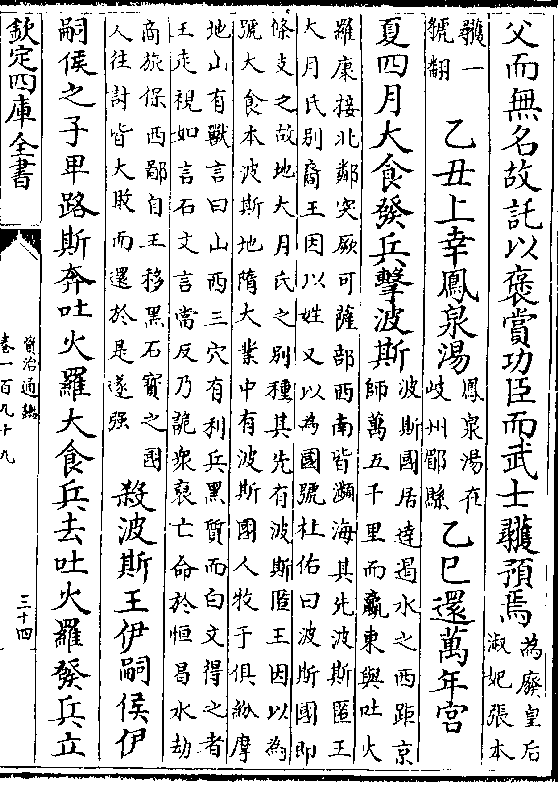 父而無名故託以褒賞功臣而武士彠預焉為廢皇后
淑妃張本
彠一
虢翻
乙丑上幸鳳泉湯鳳泉湯在
岐州郿縣
乙巳還萬年宮
夏四月大食發兵擊波斯波斯國居達遏水之西距京
師萬五千里而羸東與吐火
羅康接北鄰突厥可薩部西南皆瀕海其先波斯匿王
大月氏别裔王因以姓又以為國號杜佑曰波斯國即
條支之故地大月氏之别種其先有波斯匿王因以為
號大食本波斯地隋大業中有波斯國人牧于俱紛摩
地山有獸言曰山西三穴有利兵黑質而白文得之者
王走視如言石文言當反乃詭衆裒亡命於恒昌水劫
商旅保西鄙自王移黑石寶之國
人往討皆大敗而還於是遂强
殺波斯王伊嗣侯伊
嗣侯之子卑路斯奔吐火羅大食兵去吐火羅發兵立
欽定四庫全書
資治通鑑
卷一百九十九
三十四